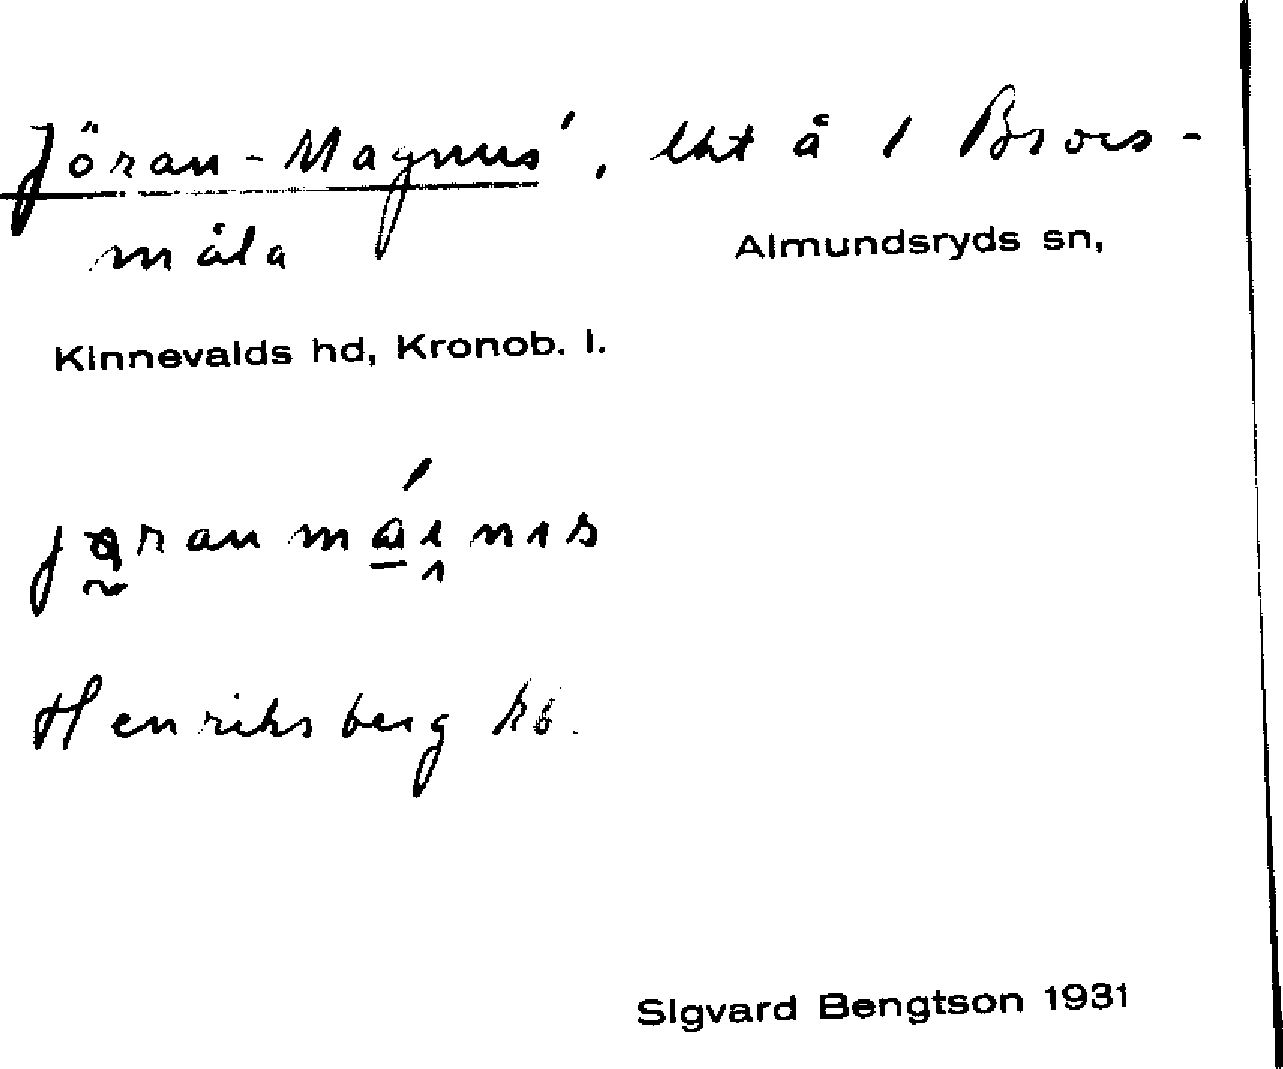 Jöran-Magnus', lht å 1 Brors-
måla
Almundsryds sn,
Kinnevalds hd, Kronob. l.
Henriksberg kb.
Sigvard Bengtson 1931